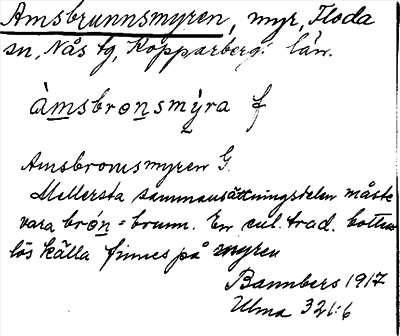 Amsbrunnsmyren, myr, Floda
sn, Nås tg, Kopparbergs län.
àmsbrọnsmy̆ra f
Amsbromsmyren G.
Mellersta sammansättningsdelen måste
vara brón = brunn. En enl. trad. botten
lös källa finnes på myren
Bannbers 1917
Ulma 321:6